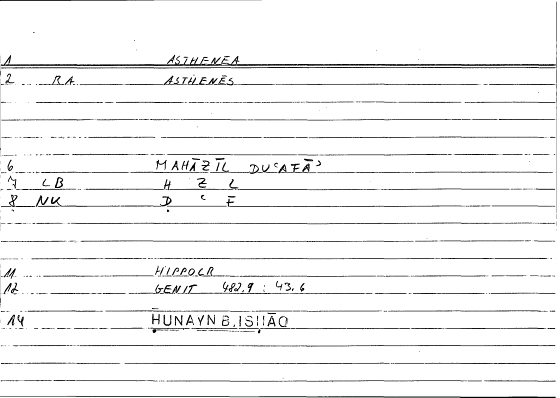 1 ASTHENEA
2 RA ASTHENĒS
6 MAHĀZĪL ḌUʿAFĀʾ
7 LB H Z L
8 NK Ḍ ʿ F
11 HIPPOCR
12 GENIT 482,9 : 43,6
14 ḤUNAYN B. ISḤĀQ